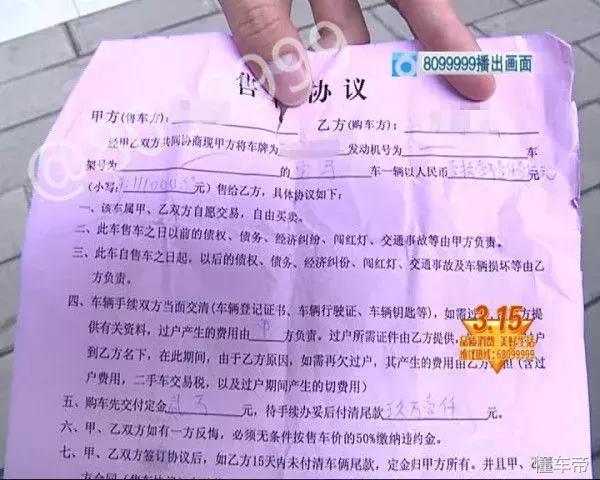 8099999播出画面
售 协议
甲方(售车方): 乙方(购车方):
经甲乙双方共同协商现甲方将车牌为 发动机号为 车
架号为 的 宝马 车一辆以人民币 元
(小写: 111000 元) 售给乙方，具体协议如下:
一、该车属甲、乙双方自愿交易，自由买卖。
二、此车售车之日以前的债权、债务、经济纠纷、闯红灯、交通事故等由甲方负责。
三、此车自售车之日起，以后的债权、债务、经济纠份、闯红灯、交通事故及车辆损坏等由乙
方负责。
四、车辆手续双方当面交清(车辆登记证书、车辆行驶证、车辆钥匙等)，如需过 方提
供有关资料，过户产生的费用由 方负责。过户所需证件由乙方提供
到乙方名下，在此期间，由于乙方原因，如需再欠过户，其产生的费用由乙方 担(含过
户费用，二手车交易税，以及过户期间产生的切费用)
五、购车先交付定金 贰万 元，待手续办妥后付清尾款 玖万壹仟 元。
六、甲、乙双方如有一方反悔，必须无条件按售车价的50%缴纳违约金。
七、甲、乙双方签订协议后，如乙方15天内未付清车辆尾款，定金归甲方所有。并且甲、乙
3.15
品质消费 美好生活
维权热线:68099999
懂车帝